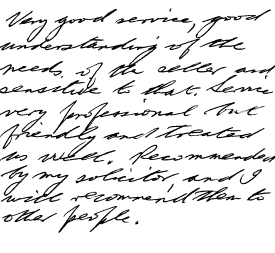 Very good service, good
understanding of the
needs of the seller and
sensitive to that. Service
very professional but
friendly and treated
us well. Recommended
by my solicitor, and I
will recommend them to
other people.